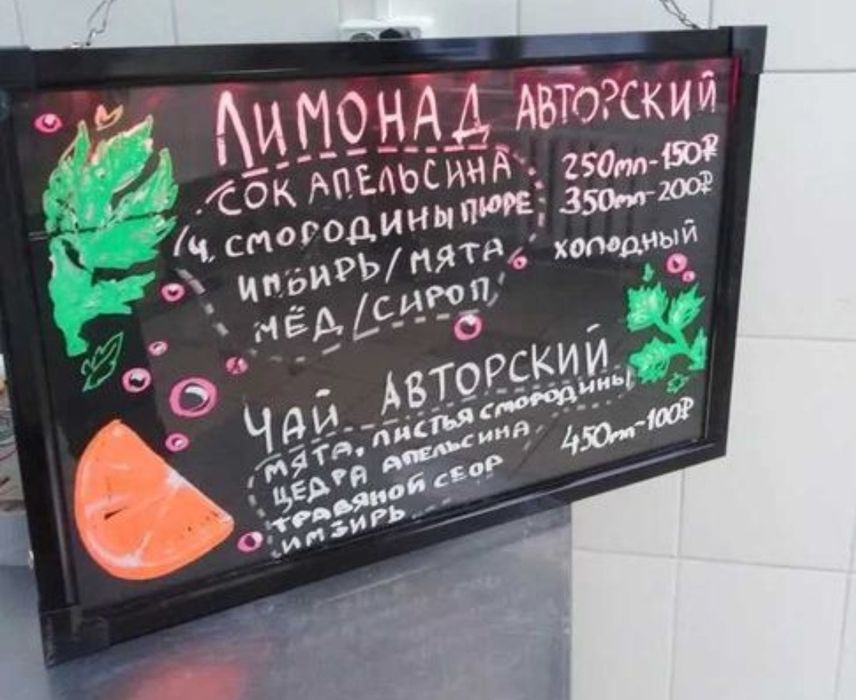 ЛИМОНАД АВТОРСКИЙ
СОК АПЕЛЬСИНА
Ч. СМОРОДИНЫ ПЮРЕ
ИМБИРЬ/МЯТА
МЁД/СИРОП
250мл-150₽
350мл-200₽
ХОЛОДНЫЙ
ЧАЙ АВТОРСКИЙ
МЯТА, ЛИСТЬЯ СМОРОДИНЫ
ЦЕДРА АПЕЛЬСИНА
ТРАВЯНОЙ СБОР
ИМБИРЬ
450мл-100₽